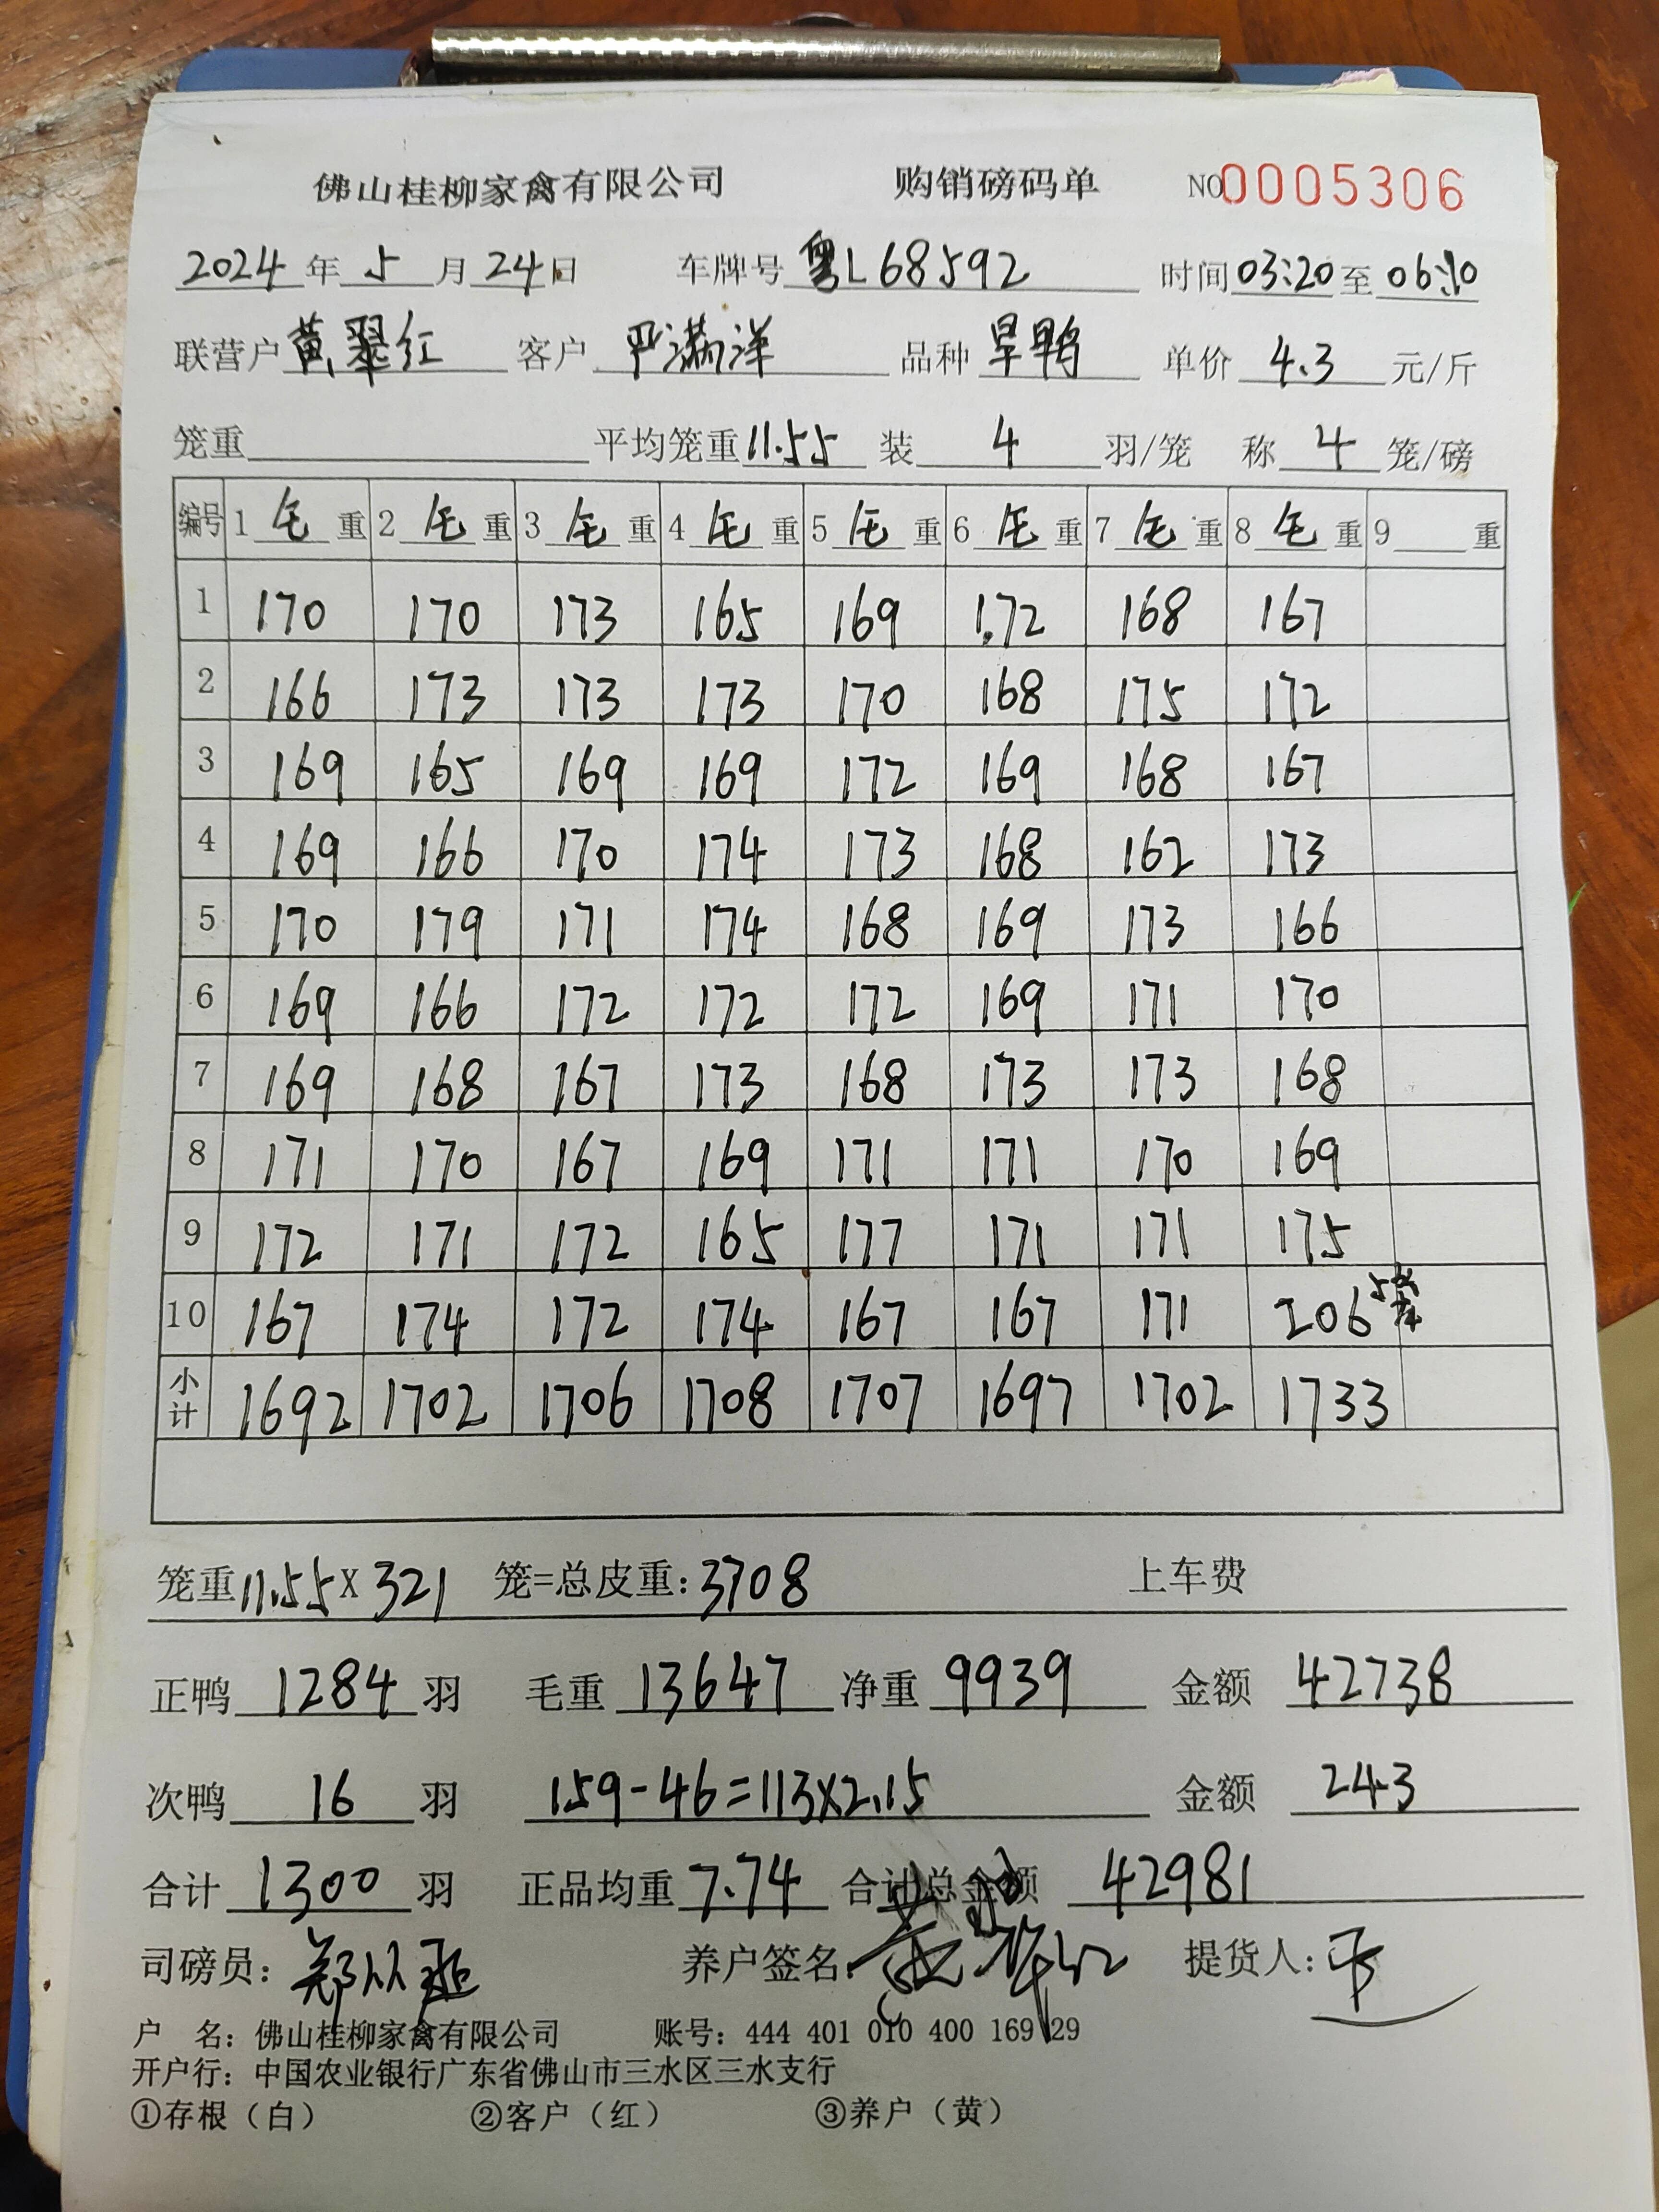 佛山桂柳家禽有限公司 购销磅码单 NO 0005306
2024年5月24日 车牌号 粤L68592 时间 03:20 至 06:10
联营户 黄翠红 客户 严满洋 品种 旱鸭 单价 4.3 元/斤
笼重 平均笼重 11.55 装 4 羽/笼 称 4 笼/磅
编号 1 毛 重 2 毛 重 3 毛 重 4 毛 重 5 毛 重 6 毛 重 7 毛 重 8 毛 重 9 重
1 170 170 173 165 169 172 168 167
2 166 173 173 173 170 168 175 172
3 169 165 169 169 172 169 168 167
4 169 166 170 174 173 168 162 173
5 170 179 171 174 168 169 173 166
6 169 166 172 172 172 169 171 170
7 169 168 167 173 168 173 173 168
8 171 170 167 169 171 171 170 169
9 172 171 172 165 177 171 171 175
10 167 174 172 174 167 167 171 206 5
小计 1692 1702 1706 1708 1707 1697 1702 1733
笼重 11.55 X 321 笼=总皮重: 3708 上车费
正鸭 1284 羽 毛重 13647 净重 9939 金额 42738
次鸭 16 羽 159-46=113x2.15 金额 243
合计 1300 羽 正品均重 7.74 合计总金额 42981
司磅员: 养户签名: 黄翠红 提货人:
户 名: 佛山桂柳家禽有限公司 账号: 444 401 010 400 169 29
开户行: 中国农业银行广东省佛山市三水区三水支行
①存根(白) ②客户(红) ③养户(黄)